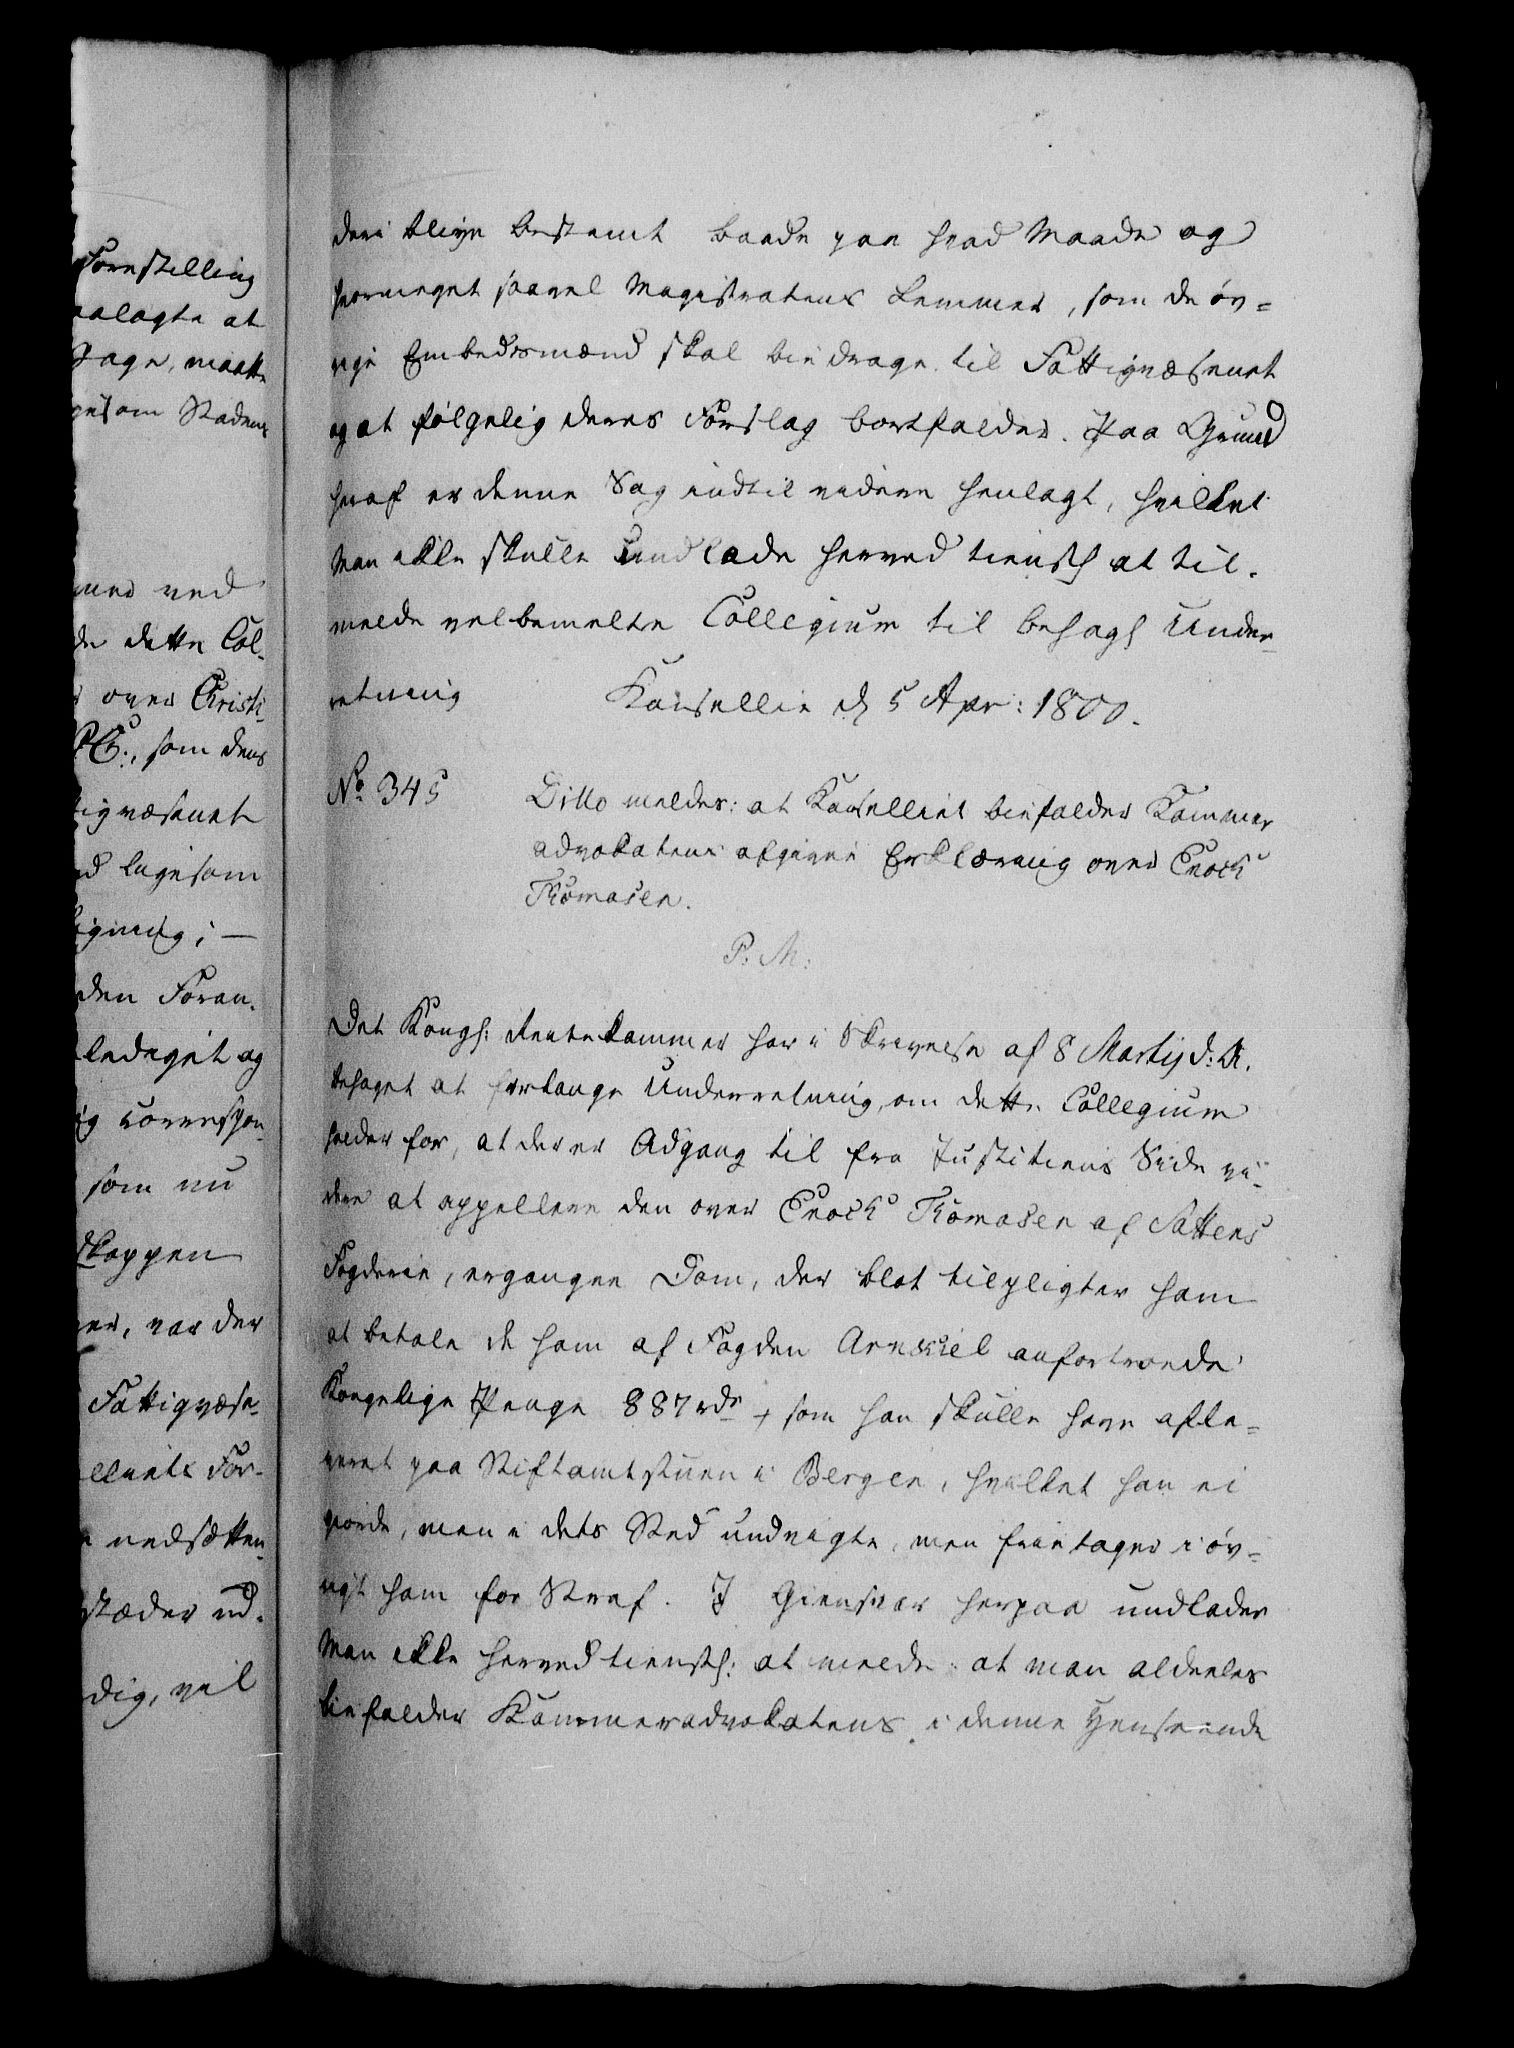 Forestilling
aalagte at
Sage, maatte
gesom Stadens
ved
de dette Col-
over Christi-
som dens
tigvæsenet
ligesom
ligning; —
den Foran-
ledeget og
ig correspon-
som nu
dskappen
er, var der
Fattigvæse-
elliets For-
nedsætten-
stæder ud-
dig, vil
deri blive bestemt baade paa hvad Maade og
hvormeget saavel Magistratens Lemmer, som de øv-
rige Embedsmænd skal bidrage til Fattigvæsenet
og at følgelig deres Forslag bortfalder. Paa Grund
heraf er denne Sag indtil videre henlagt, hvilket
Man ikke skulle undlade herved tienstl at til-
melde velbemelte Collegium til behagl Under-
retning Kancellie d 5 Apr: 1800.
No 345 Ditto melder: at Kancelliet biefalder Kammer
advokatens afgivne Erklæring over Enoch
Thomasen.
P: M:
Det Kongl: Rentekammer har i Skrivelse af 8 Martij d: A.
behaget at forlange Underretning, om dette Collegium
holder for, at der er Adgang til fra Justitiens Side vi-
dere at appellere den over Enoch Thomasen af Sættens
Fogderie, ergangne Dom, der blot tilpligter ham
at betale de ham af Fogden Arnkiel anfortroede
Kongelige Penge 887 rdr, som han skulle have afle-
veret paa Stiftamtstuen i Bergen, hvilket han ei
giorde, men i dets Sted undvigte, men frietager i øv-
rigt ham for Straf. I Giensvar herpaa undlader
Man ikke herved tienstl: at melde: at man aldeeles
biefalder Kammeradvokatens i denne Henseende